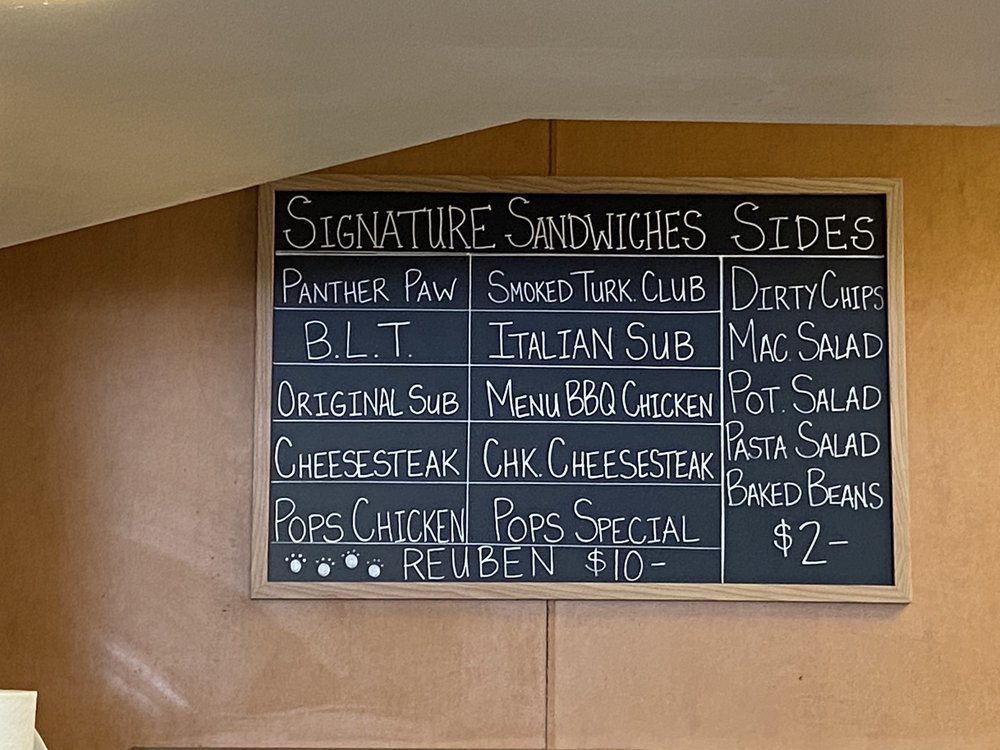 SIGNATURE SANDWICHES SIDES
PANTHER PAW SMOKED TURK. CLUB DIRTY CHIPS
B.L.T. ITALIAN SUB MAC SALAD
ORIGINAL SUB MENU BBQ CHICKEN POT. SALAD
CHEESESTEAK CHK. CHEESESTEAK PASTA SALAD
POPS CHICKEN POPS SPECIAL BAKED BEANS
REUBEN $10- $2-